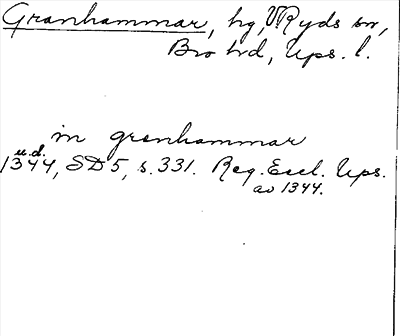 Granhammar, hg, V Ryds sn,
Bro hd, Upps. l.
in granhammar
u.d.
1344, SD 5, s. 331. Reg. Eccl. Ups.
av 1344.